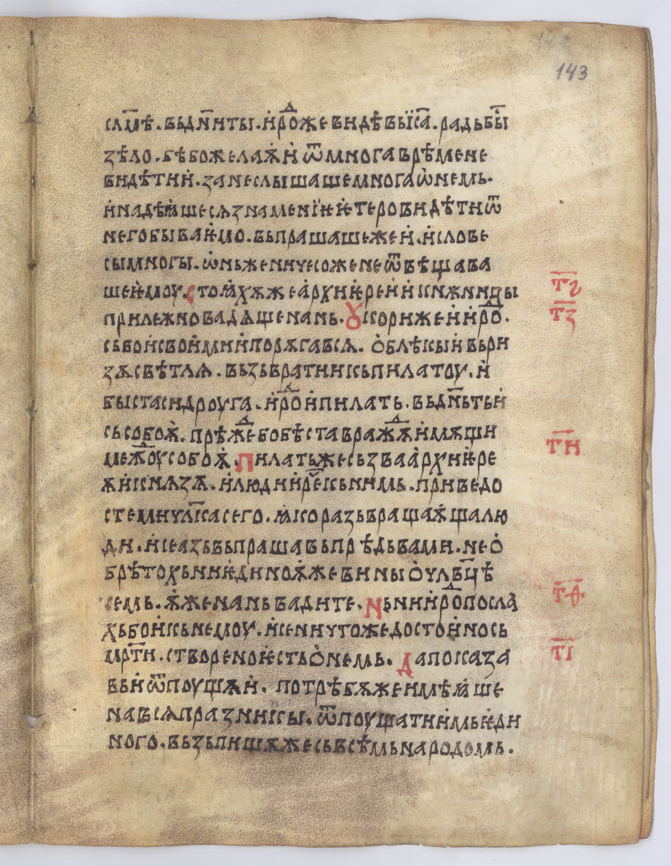 143
слⷨѣ. вьдн҃иты. и҆роⷣже видѣвы їс҃а. радь бы҃
ѕѣло. бѣ бо желаѫ ѿ многа врѣмене
видѣти и҆. зане слышаше многа ѡ҆ немь.
и҆ надѣꙗше сѧ знаменїе ѥтеро видѣти ѿ
него бываѥмо. вьпрашаше же и҆. и҆ слове
сы многы. ѡ҆нь же ничесоже не ѿвѣщава
ше ѥмоу. стоꙗхѫ же архиѥреи и҆ книжници
прилежно вадѧще на нь. Ꙋкори же и҆ и҆роⷣ.
сь вои своими и҆ порѫгавсѧ. о҆блѣкы и҆ вь ри
зѫ свѣтлѫ. вьзврати и҆ кь пилатоу. и҆
быста си дроуга. и҆роⷣ и҆ пилать. вь дн҃ь ть и҆
сь собоѫ. прѣжⷣе бо бѣста враждⷣѫ имѫщи
межⷣоу собоѫ. Пилать же сьзва архиѥре
ѫ и҆ кнѧзѧ. и҆ люди и҆ реⷱ кь нимь. приведо
сте ми чл҃ка сего. ꙗко разьвращаѫща лю
ди. и҆ се азь вьпрашавь прѣдь вами. не о҆
брѣтохь ни ѥдиноѫже вины о҆ чл҃вцѣ
семь. ѫже на нь вадите. Нь ни и҆роⷣ посла
хь бо и҆ кь немоу. и҆ се ничтоже достоино сь
мрⷬ҇ти. створено ѥсть о҆ немь. Да показа
вь и҆ ѿпоущѫ и҆. потрѣбѫ же имѣꙗше
на всѧ празникы. ѿпоущати имь ѥди
ного. вьзьпишѫ же сь всѣмь народомь.
т҃г
т҃з
т҃и
т҃ѳ
т҃і